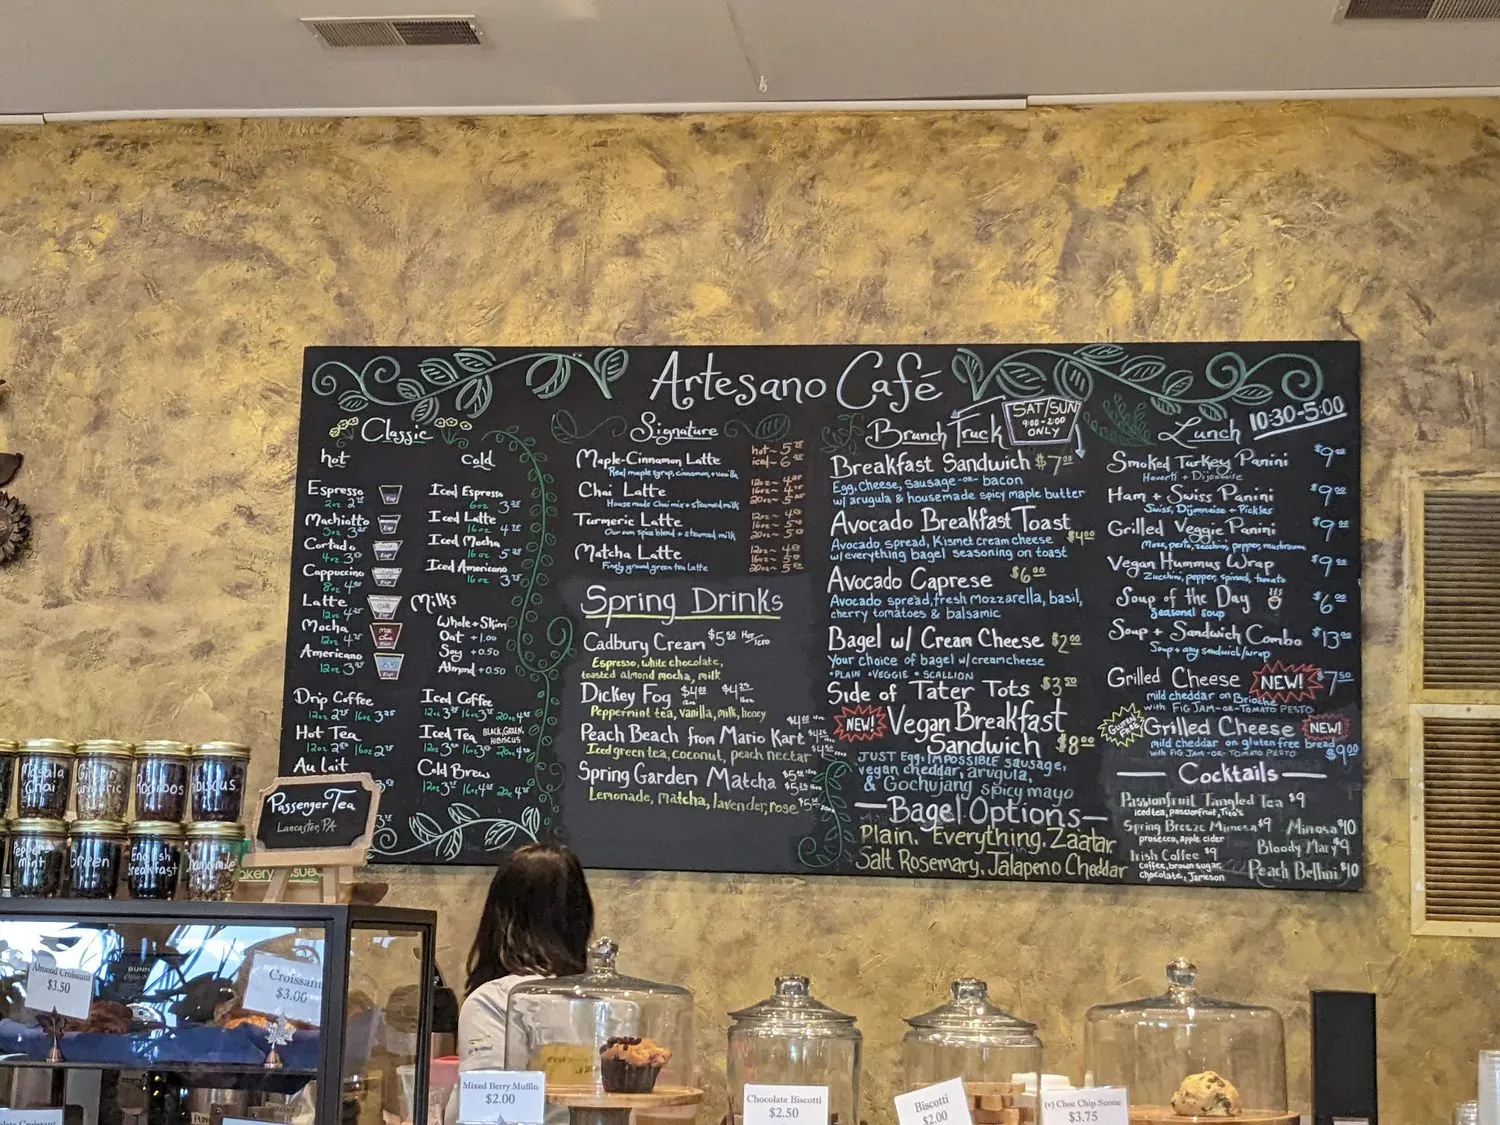 Artesano Café
Classic
hot
Cold
Espresso
2oz
Machiatto
3oz
Cortado
4oz
Cappuccino
8oz
Latte
12oz
Mocha
12oz
Americano
12oz
Iced Espresso
6oz
Iced Latte
16oz
Iced Mocha
16oz
Iced Americano
16oz
Milks
Whole + Skim
Oat +1.00
Soy +0.50
Almond +0.50
Drip Coffee
Hot Tea
Au lait
Iced Coffee
Iced Tea BLACK, GREEN,
HIBISCUS
Cold Brew
Signature
Maple-Cinnamon Latte
Real maple syrup, cinnamon, + vanilla
hot~
iced~
Chai Latte
House made Chai mix + steamed milk
Turmeric Latte
Our own spice blend + steamed milk
Matcha Latte
Finely ground green tea latte
Spring Drinks
Cadbury Cream $5.50 Hot/Iced
Espresso, white chocolate,
toasted almond mocha, milk
Dickey Fog
Peppermint tea, vanilla, milk, honey
Peach Beach from Mario Kart
Iced green tea, coconut, peach nectar
Spring Garden Matcha
Lemonade, matcha, lavender, rose
Brunch Truck
SAT/SUN
9:00-2:00
ONLY
Breakfast Sandwich $7.00
Egg, cheese, sausage -or- bacon
w/ arugula & housemade spicy maple butter
Avocado Breakfast Toast
Avocado spread, Kismet cream cheese $4.00
w/ everything bagel seasoning on toast
Avocado Caprese $6.00
Avocado spread, fresh mozzarella, basil,
cherry tomatoes & balsamic
Bagel w/ Cream Cheese $2.00
Your choice of bagel w/ creamcheese
•PLAIN •VEGGIE •SCALLION
Side of Tater Tots $3.50
NEW! Vegan Breakfast
Sandwich $8.00
JUST Egg, IMPOSSIBLE sausage,
vegan cheddar, arugula,
& Gochujang spicy mayo
Bagel Options
Plain. Everything. Zaatar
Salt Rosemary, Jalapeno Cheddar
Lunch 10:30-5:00
Smoked Turkey Panini $9.00
Havarti + Dijonaise
Ham + Swiss Panini $9.00
Swiss, Dijonnaise + Pickles
Grilled Veggie Panini $9.00
Mozz, pesto, zucchini, pepper, mushrooms
Vegan Hummus Wrap $9.00
Zucchini, pepper, spinach, tomato
Soup of the Day $6.00
Seasonal soup
Soup + Sandwich Combo $13.00
Soup + any sandwich/wrap
Grilled Cheese NEW! $7.50
mild cheddar on Brioche
with FIG JAM -OR- TOMATO PESTO
GLUTEN FREE! Grilled Cheese NEW!
mild cheddar on gluten free bread $9.00
with FIG JAM -OR- TOMATO PESTO
Cocktails
Passionfruit Tangled Tea $9
iced tea, passionfruit, Tito's
Spring Breeze Mimosa $9
prosecco, apple cider
Irish Coffee $9
coffee, brown sugar,
chocolate, Jameson
Mimosa $10
Bloody Mary $9
Peach Bellini $10
Masala
Chai
Ginger
Turmeric
Rooibos
Hibiscus
Peppermint
Green
English
Breakfast
Chamomile
Passenger Tea
Lancaster, PA
Almond Croissant
$3.50
BUNN
Croissant
$3.00
Mixed Berry Muffin
$2.00
Chocolate Biscotti
$2.50
Biscotti
$2.00
(v) Choc Chip Scone
$3.75